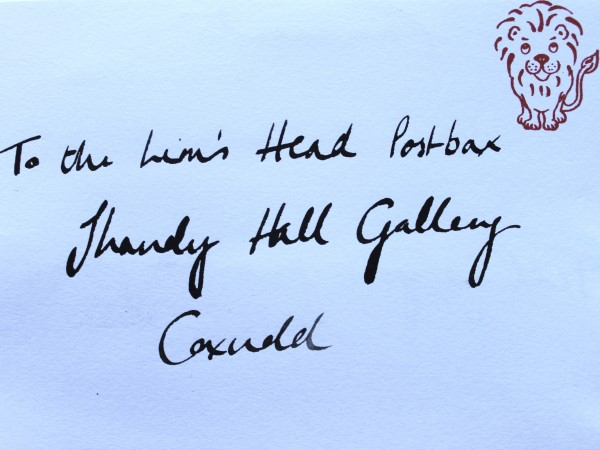 To the Lion's Head Postbox
Shandy Hall Gallery
Coxwold